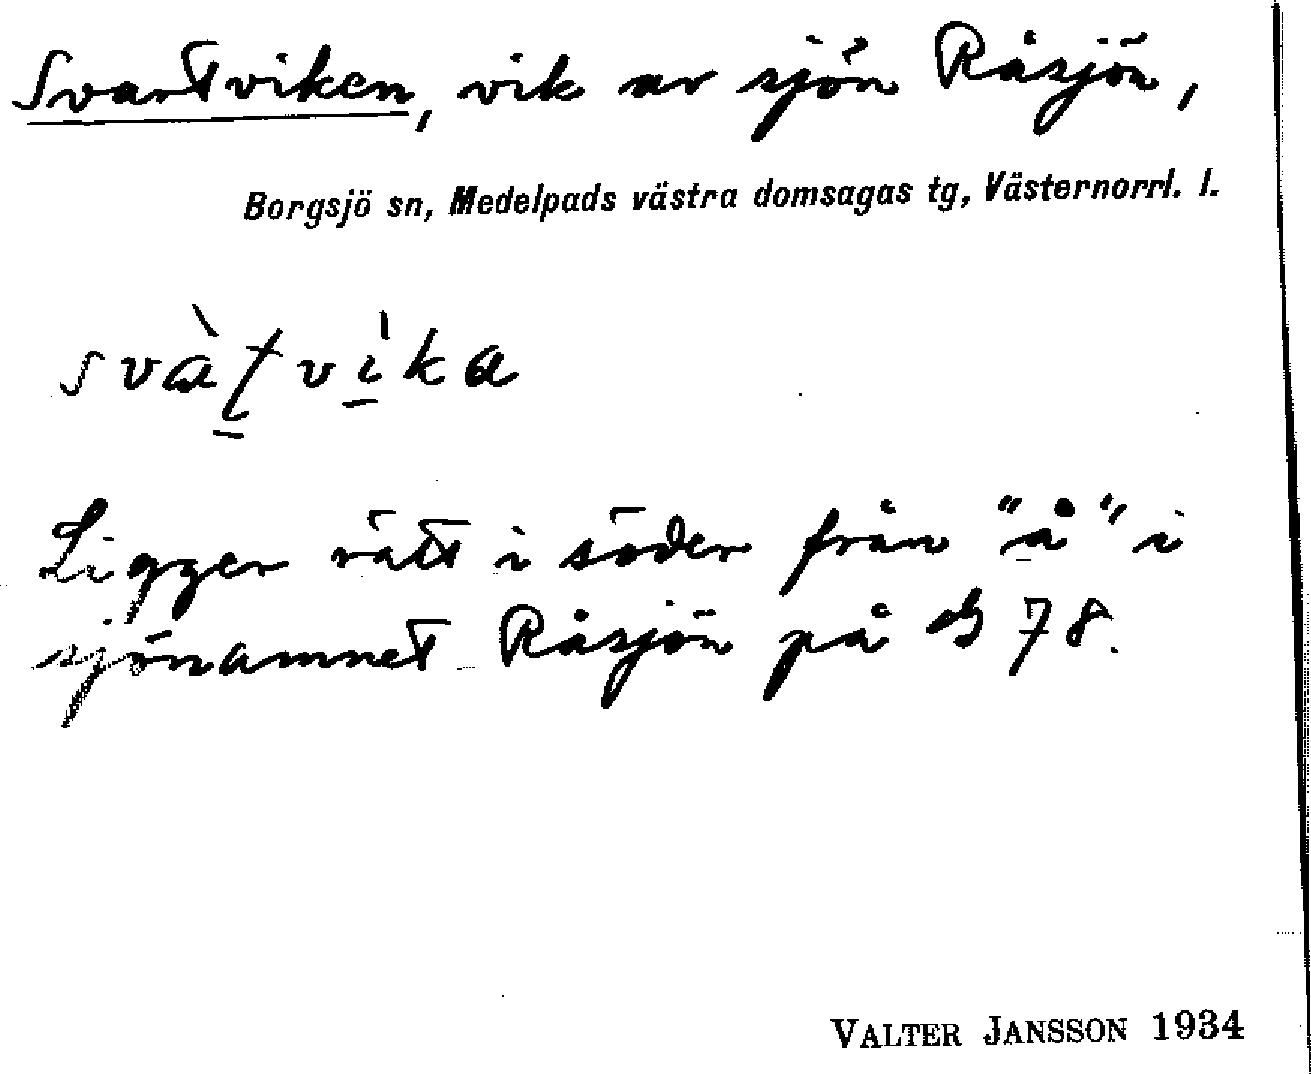 Svartviken, vik av sjön Råsjön,
Borgsjö sn, Medelpads västra domsagas tg, Västernorrl. l.
svàƫvìka
Ligger rätt i söder från "å" i
sjönamnet Råsjön på gs 78.
VALTER JANSSON 1934